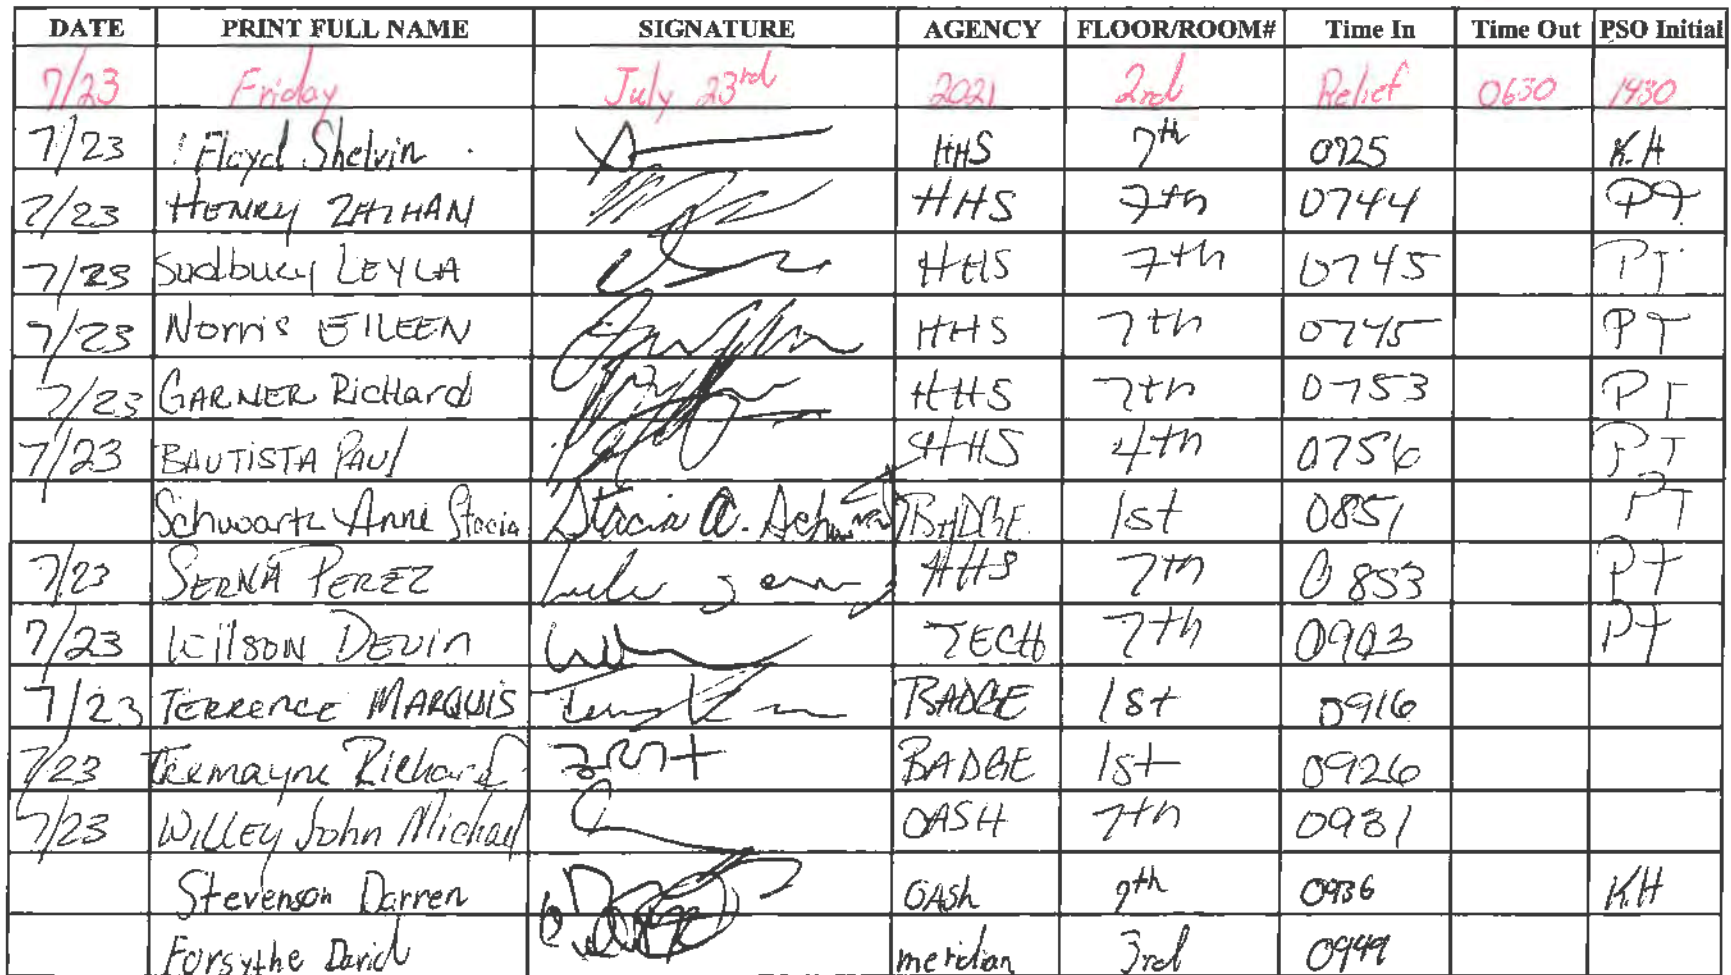 DATE PRINT FULL NAME SIGNATURE AGENCY FLOOR/ROOM# Time In Time Out PSO Initial
7/23 Friday July 23rd 2021 2nd Relief 0630 1430
7/23 Floyd Shelvin HHS 7th 0725 K.H
7/23 HENRY ZHIHAN HHS 7th 0744 PT
7/23 Sudbury LEYLA HHS 7th 0745 PT
7/23 Norris EILEEN HHS 7th 0745 PT
7/23 GARNER RicHard HHS 7th 0753 PT
7/23 BAUTISTA PAUl HHS 4th 0756 PT
Schwartz Anne Stacia Stacia A. BADGE 1st 0851 PT
7/23 SERNA PEREZ HHS 7th 0853 PT
7/23 WilSON DEVIN TECH 7th 0903 PT
7/23 TERRENCE MARQUIS BADGE 1st 0916
7/23 Tremayne Richard BADGE 1st 0926
7/23 WILLEY John Michael OASH 7th 0931
Stevenson Darren OASh 0936 K.H
Forsythe David meridian 3rd 0949